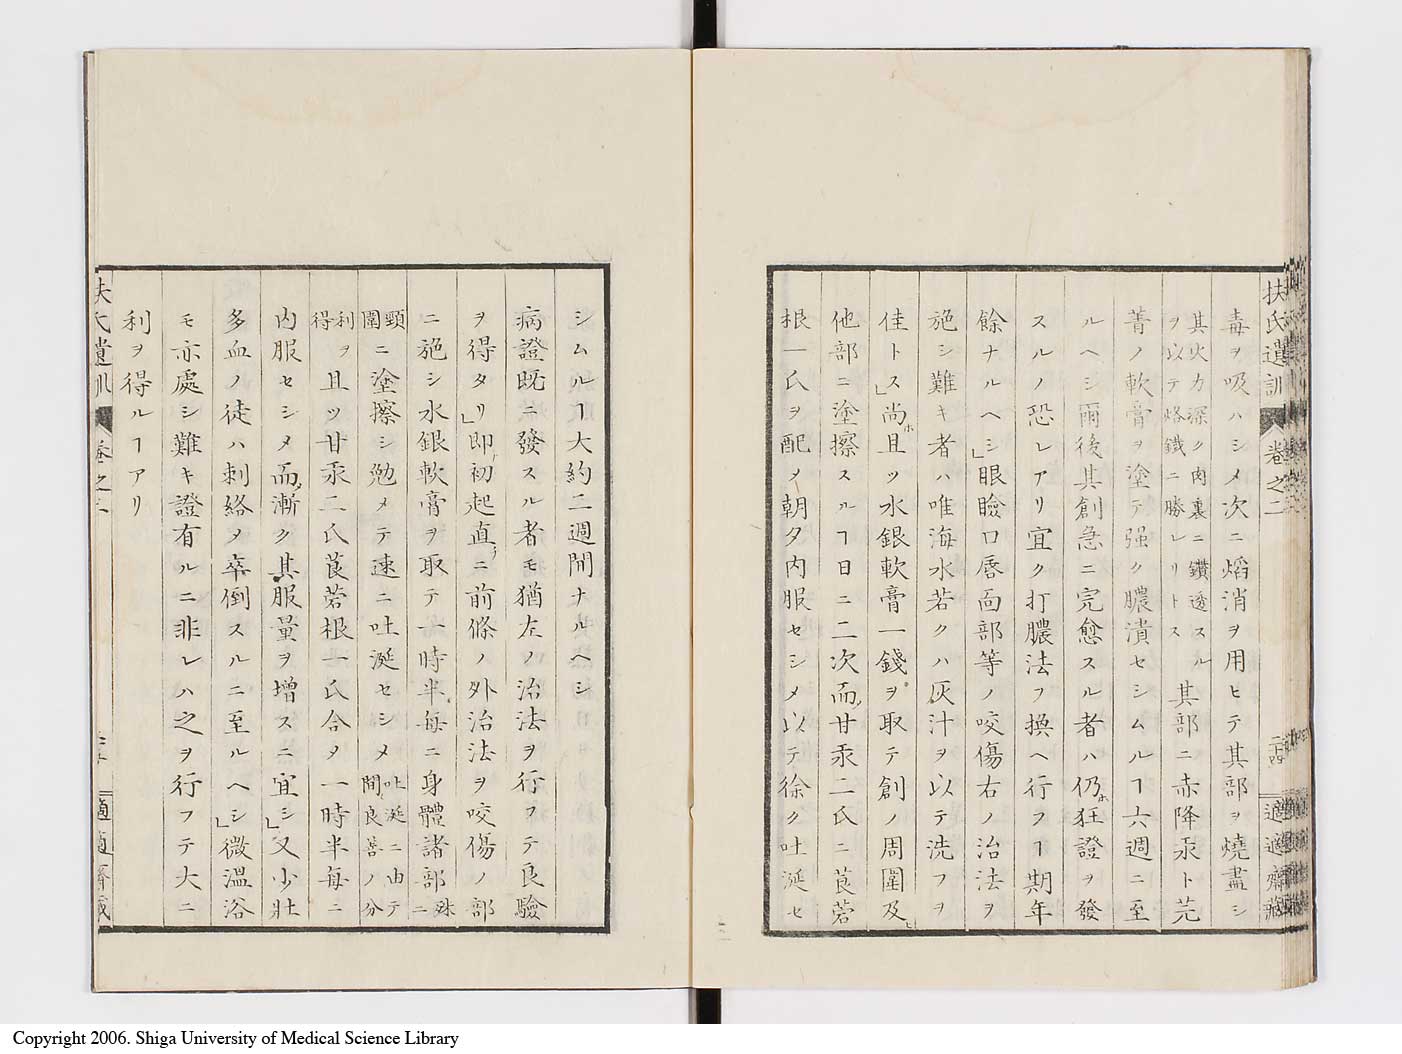 扶氏遺訓 卷之二 二十四 適適齋藏
毒ヲ吸ハシメ次ニ焰消ヲ用ヒテ其部ヲ燒盡シ
其火力深ク肉裏ニ鑽透スル
ヲ以テ烙鐵ニ勝レリトス
其部ニ赤降汞ト芫
菁ノ軟膏ヲ塗テ强ク膿潰セシムルヿ六週ニ至
ルヘシ爾後其創急ニ完愈スル者ハ仍ホ狂證ヲ發
スルノ恐レアリ宜ク打膿法フ換ヘ行フヿ期年
餘ナルヘシ」眼瞼口唇面部等ノ咬傷右ノ治法ヲ
施シ難キ者ハ唯海水若クハ灰汁ヲ以テ洗フヲ
佳トス」尚ホ且ツ水銀軟膏一錢ヲ取テ創ノ周圍及ヒ
他部ニ塗擦スルヿ日ニ二次而甘汞二氏ニ莨菪
根一氏ヲ配メ朝夕内服セシメ以テ徐ク吐涎セ
シムルヿ大約二週間ナルヘシ
病證既ニ發スル者モ猶左ノ治法ヲ行フテ良驗
ヲ得タリ」即初起直ニ前條ノ外治法ヲ咬傷ノ部
ニ施シ水銀軟膏ヲ取テ一時半毎ニ身體諸部ニ殊
頸
圍
ニ塗擦シ勉メテ速ニ吐涎セシメ
吐涎ニ由テ
間良善ノ分
利ヲ
得
且ツ甘汞二氏莨菪根一氏合メ一時半每ニ
内服セシメ而漸ク其服量ヲ增スニ宜シ」又少壯
多血ノ徒ハ刺絡メ卒倒スルニ至ルヘシ」微溫浴
モ亦處シ難キ證有ルニ非レハ之ヲ行フテ大ニ
利ヲ得ルヿアリ
扶氏遺訓 卷之二 適適齋藏
Copyright 2006. Shiga University of Medical Science Library